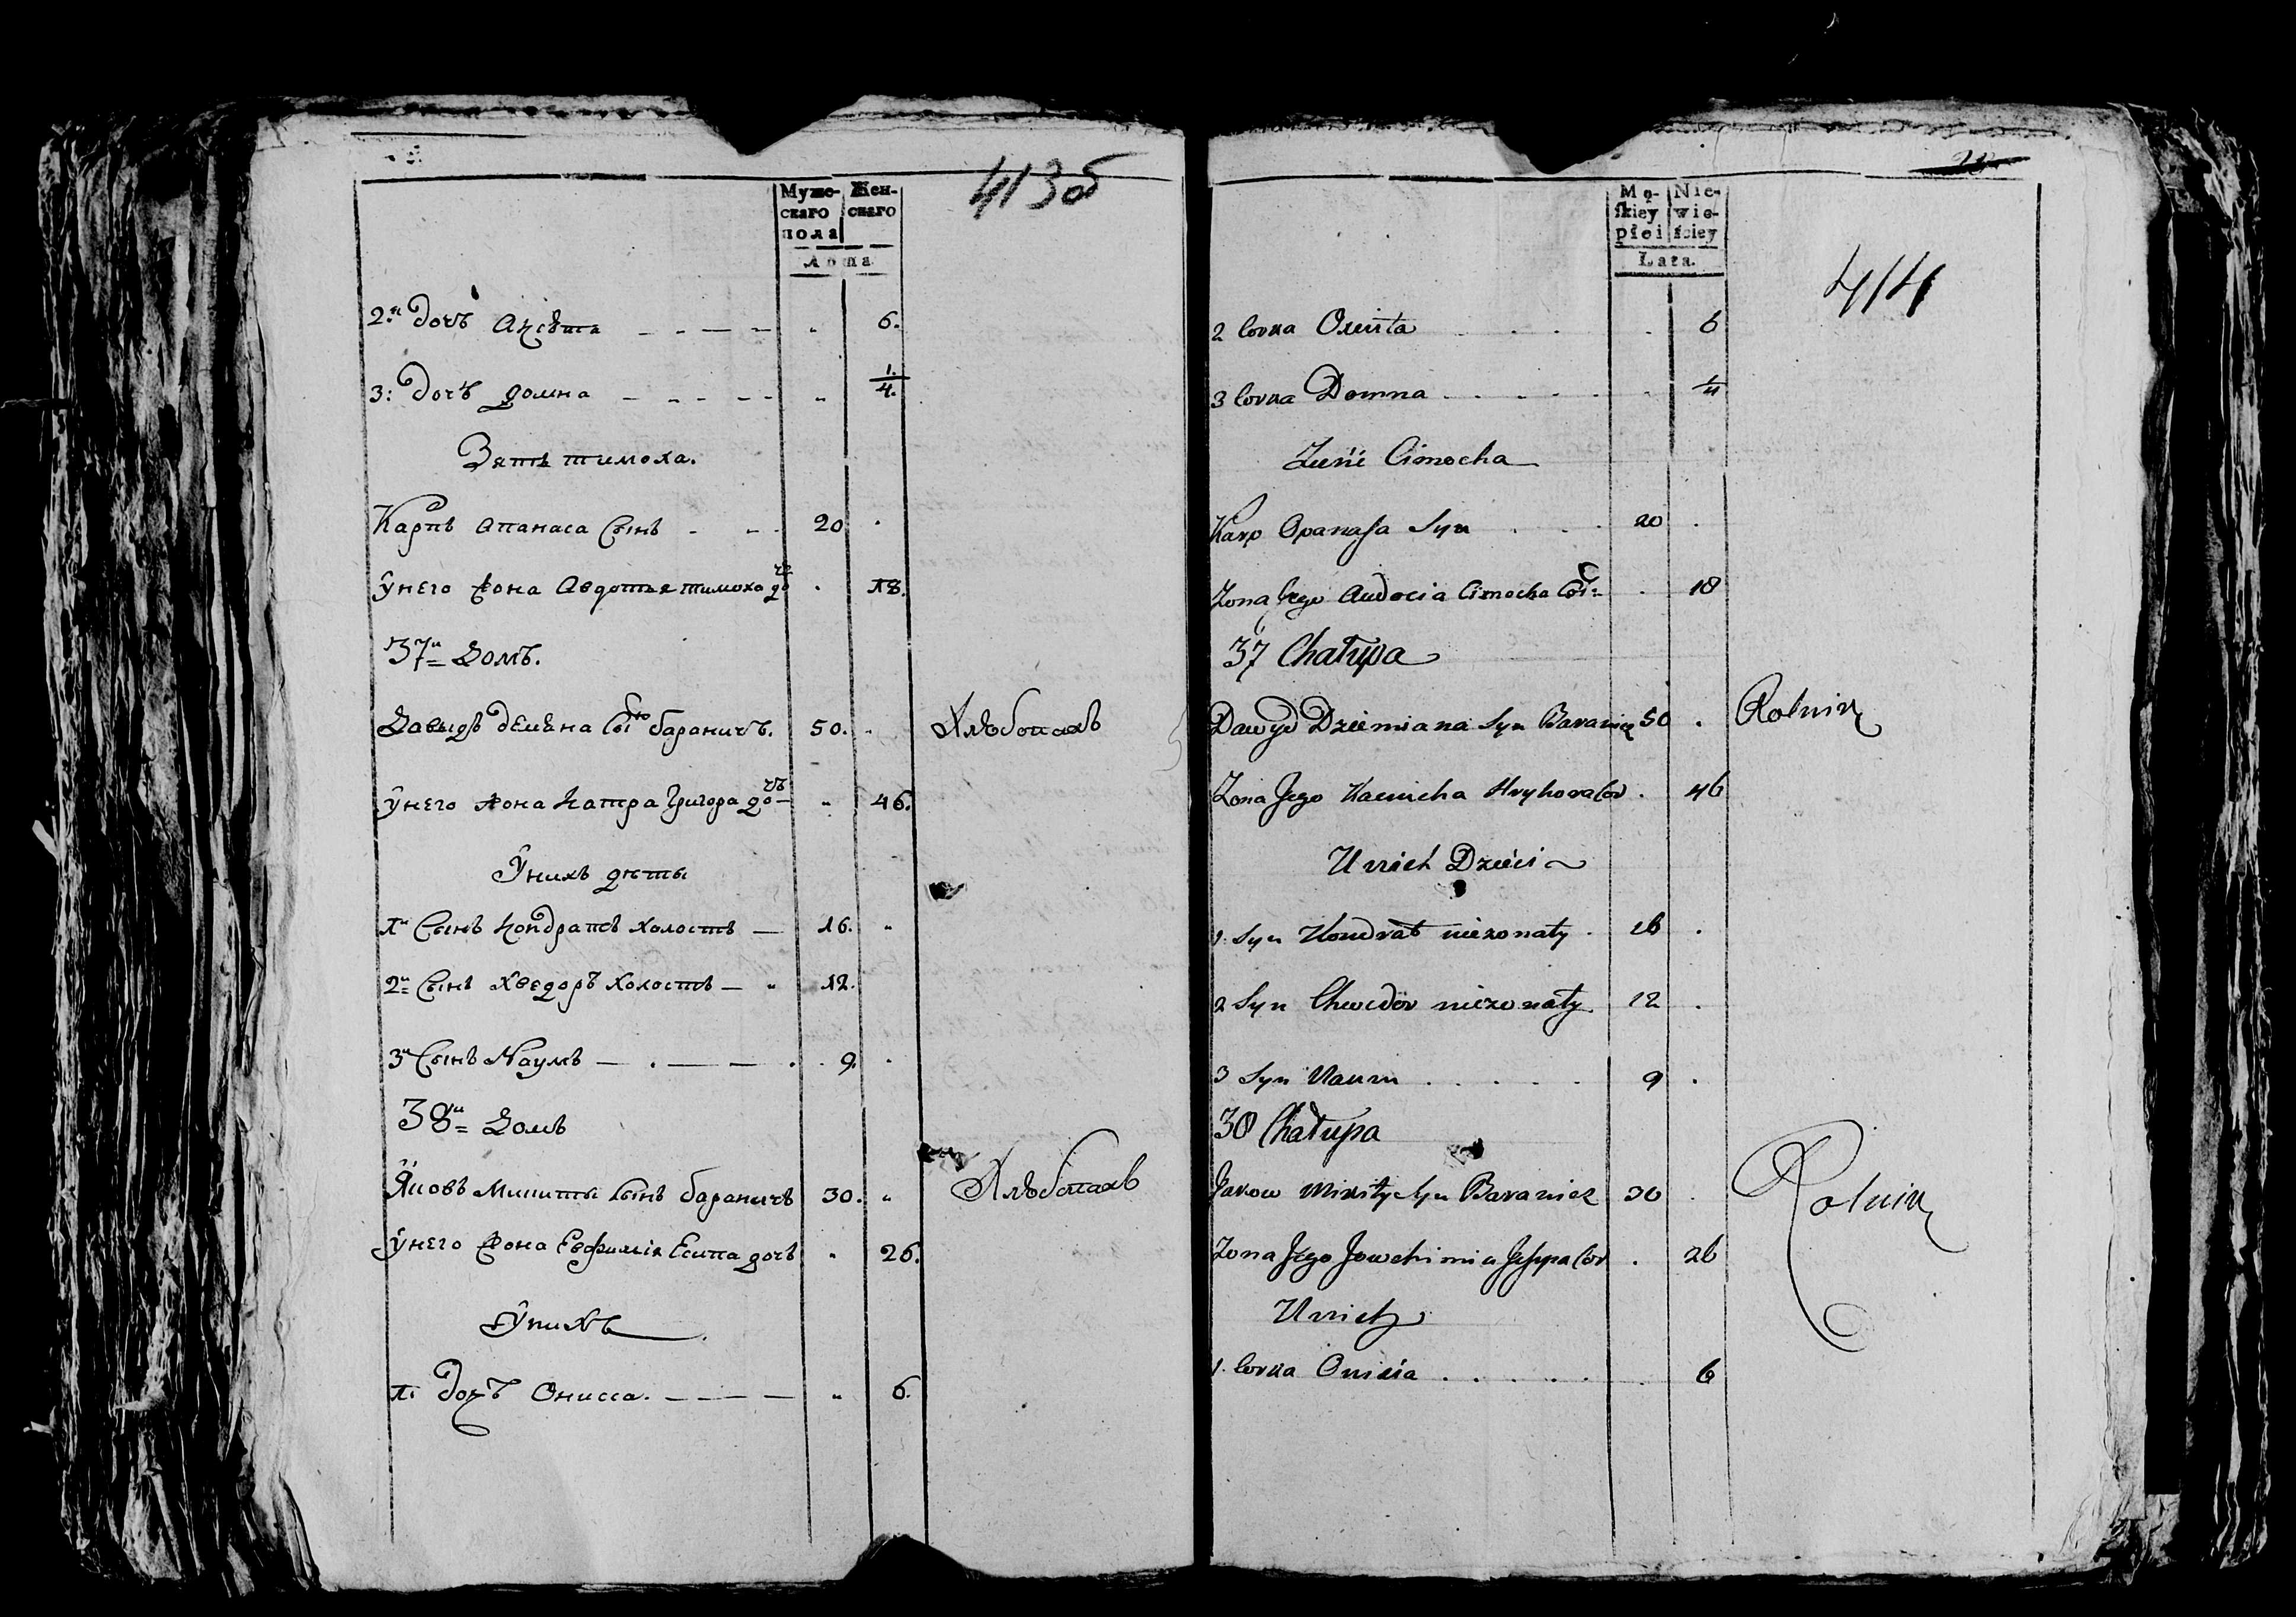 413об
Муже-
скаго
пола
Жен-
скаго
Лѣта
2й дочъ Аксѣнта 6.
3: дочъ домна 1/4.
Зять тимоха.
Карпъ апанаса Сынъ 20
унего жона Авдотья тимоха дочъ 18.
37й Домъ.
Давыдъ демьяна Сынъ бараничъ. 50. Хлѣбопахъ
унего жона Григора дочъ 46.
Унихъ дѣты
1й Сынъ Кондратъ холостъ 16.
2й Сынъ Хведоръ холостъ 12.
3й Сынъ Наумъ 9.
38й Домъ
Яковъ Микиты Сынъ бараничъ 30. Хлѣбопахъ
унего жона Евфимія Есипа дочъ 26.
Унихъ
1. дочъ Онисса. 6.
414
Mę-
skiey
płci
Nie-
wie-
ściey
Lata.
2 Corka 6
3 Corka Domna 1/4
Zieńć Cimocha
Karp Opanasa Syn 20
Zona Jego Audocia Cimocha Cor 18
37 Chałupa
Dawyd Dziemiana Syn Baranicz 50 Rolnik
Zona Jego Hryhora Cor 46
U nich Dzieci
1 Syn Kondrat nieżonaty 16
2 Syn Chwedor nieżonaty 12
3 Syn Naum 9
38 Chałupa
Jakow Mikity Syn Baranicz 30 Rolnik
Zona Jego Jowchimia Jesypa Cor 26
U nich
1. Corka Onisia 6